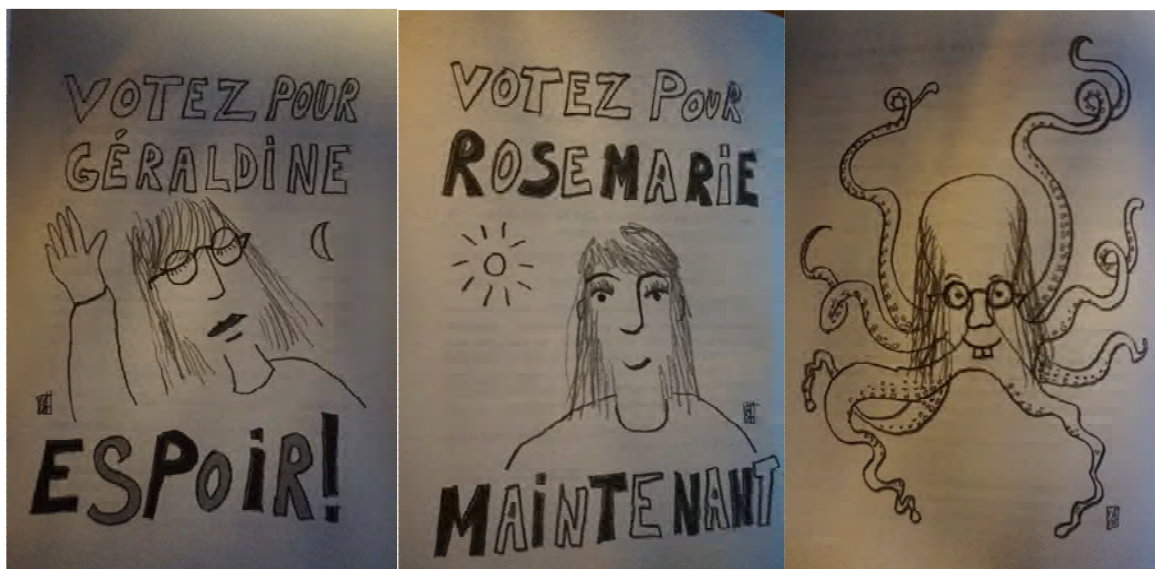 VOTEZ POUR
GÉRALDINE
ESPOIR!
VOTEZ POUR
ROSEMARIE
MAINTENANT